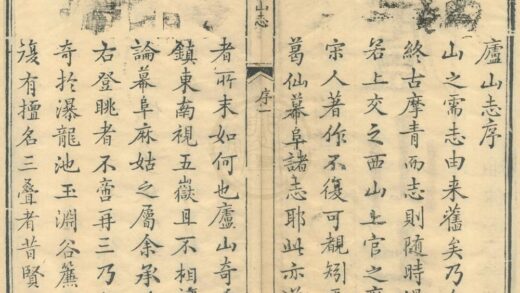 廬山志序
山之需志由来舊矣乃
終古摩青而志則随時
若上交之西山上官之
宋人著作不復可觀矧
葛仙幕阜諸志耶此亦
山志
序一
者所末如何也廬山奇
鎮東南視五嶽且不相
論幕阜麻姑之屬余承
右登眺者不啻再三乃
奇扵瀑龍池玉淵谷簾
復有擅名三叠者昔賢